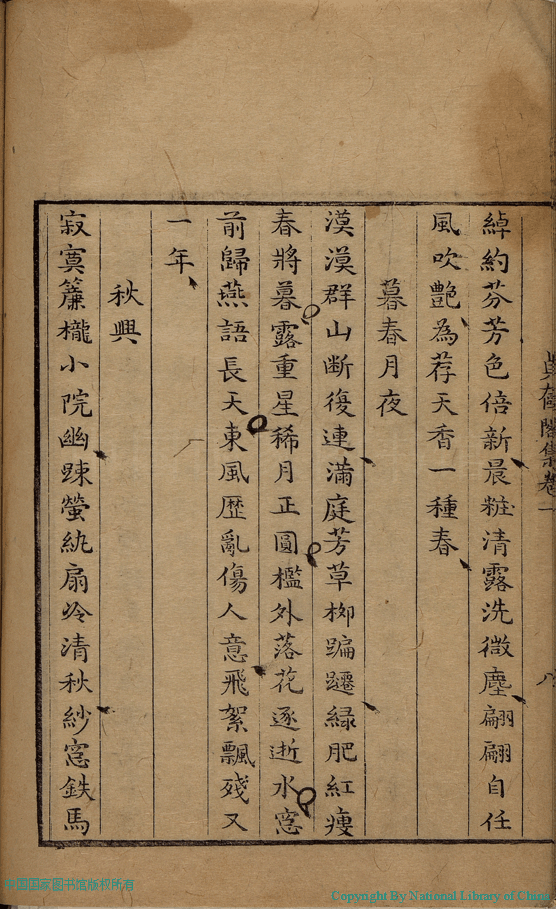 閣集卷一
八
綽約芬芳色倍新晨粧清露洗微塵翩翩自任
風吹艷為荐天香一種春
暮春月夜
漠漠群山断復連滿庭芳草柳蹁躚緑肥紅瘦
春將暮露重星稀月正圓檻外落花逐逝水窓
前歸燕語長天東風歷亂傷人意飛絮飄殘又
一年
秋興
寂寞簾櫳小院幽踈螢紈扇冷清秋紗窓鉄馬
中国国家图书馆版权所有
Copyright By National Library of China